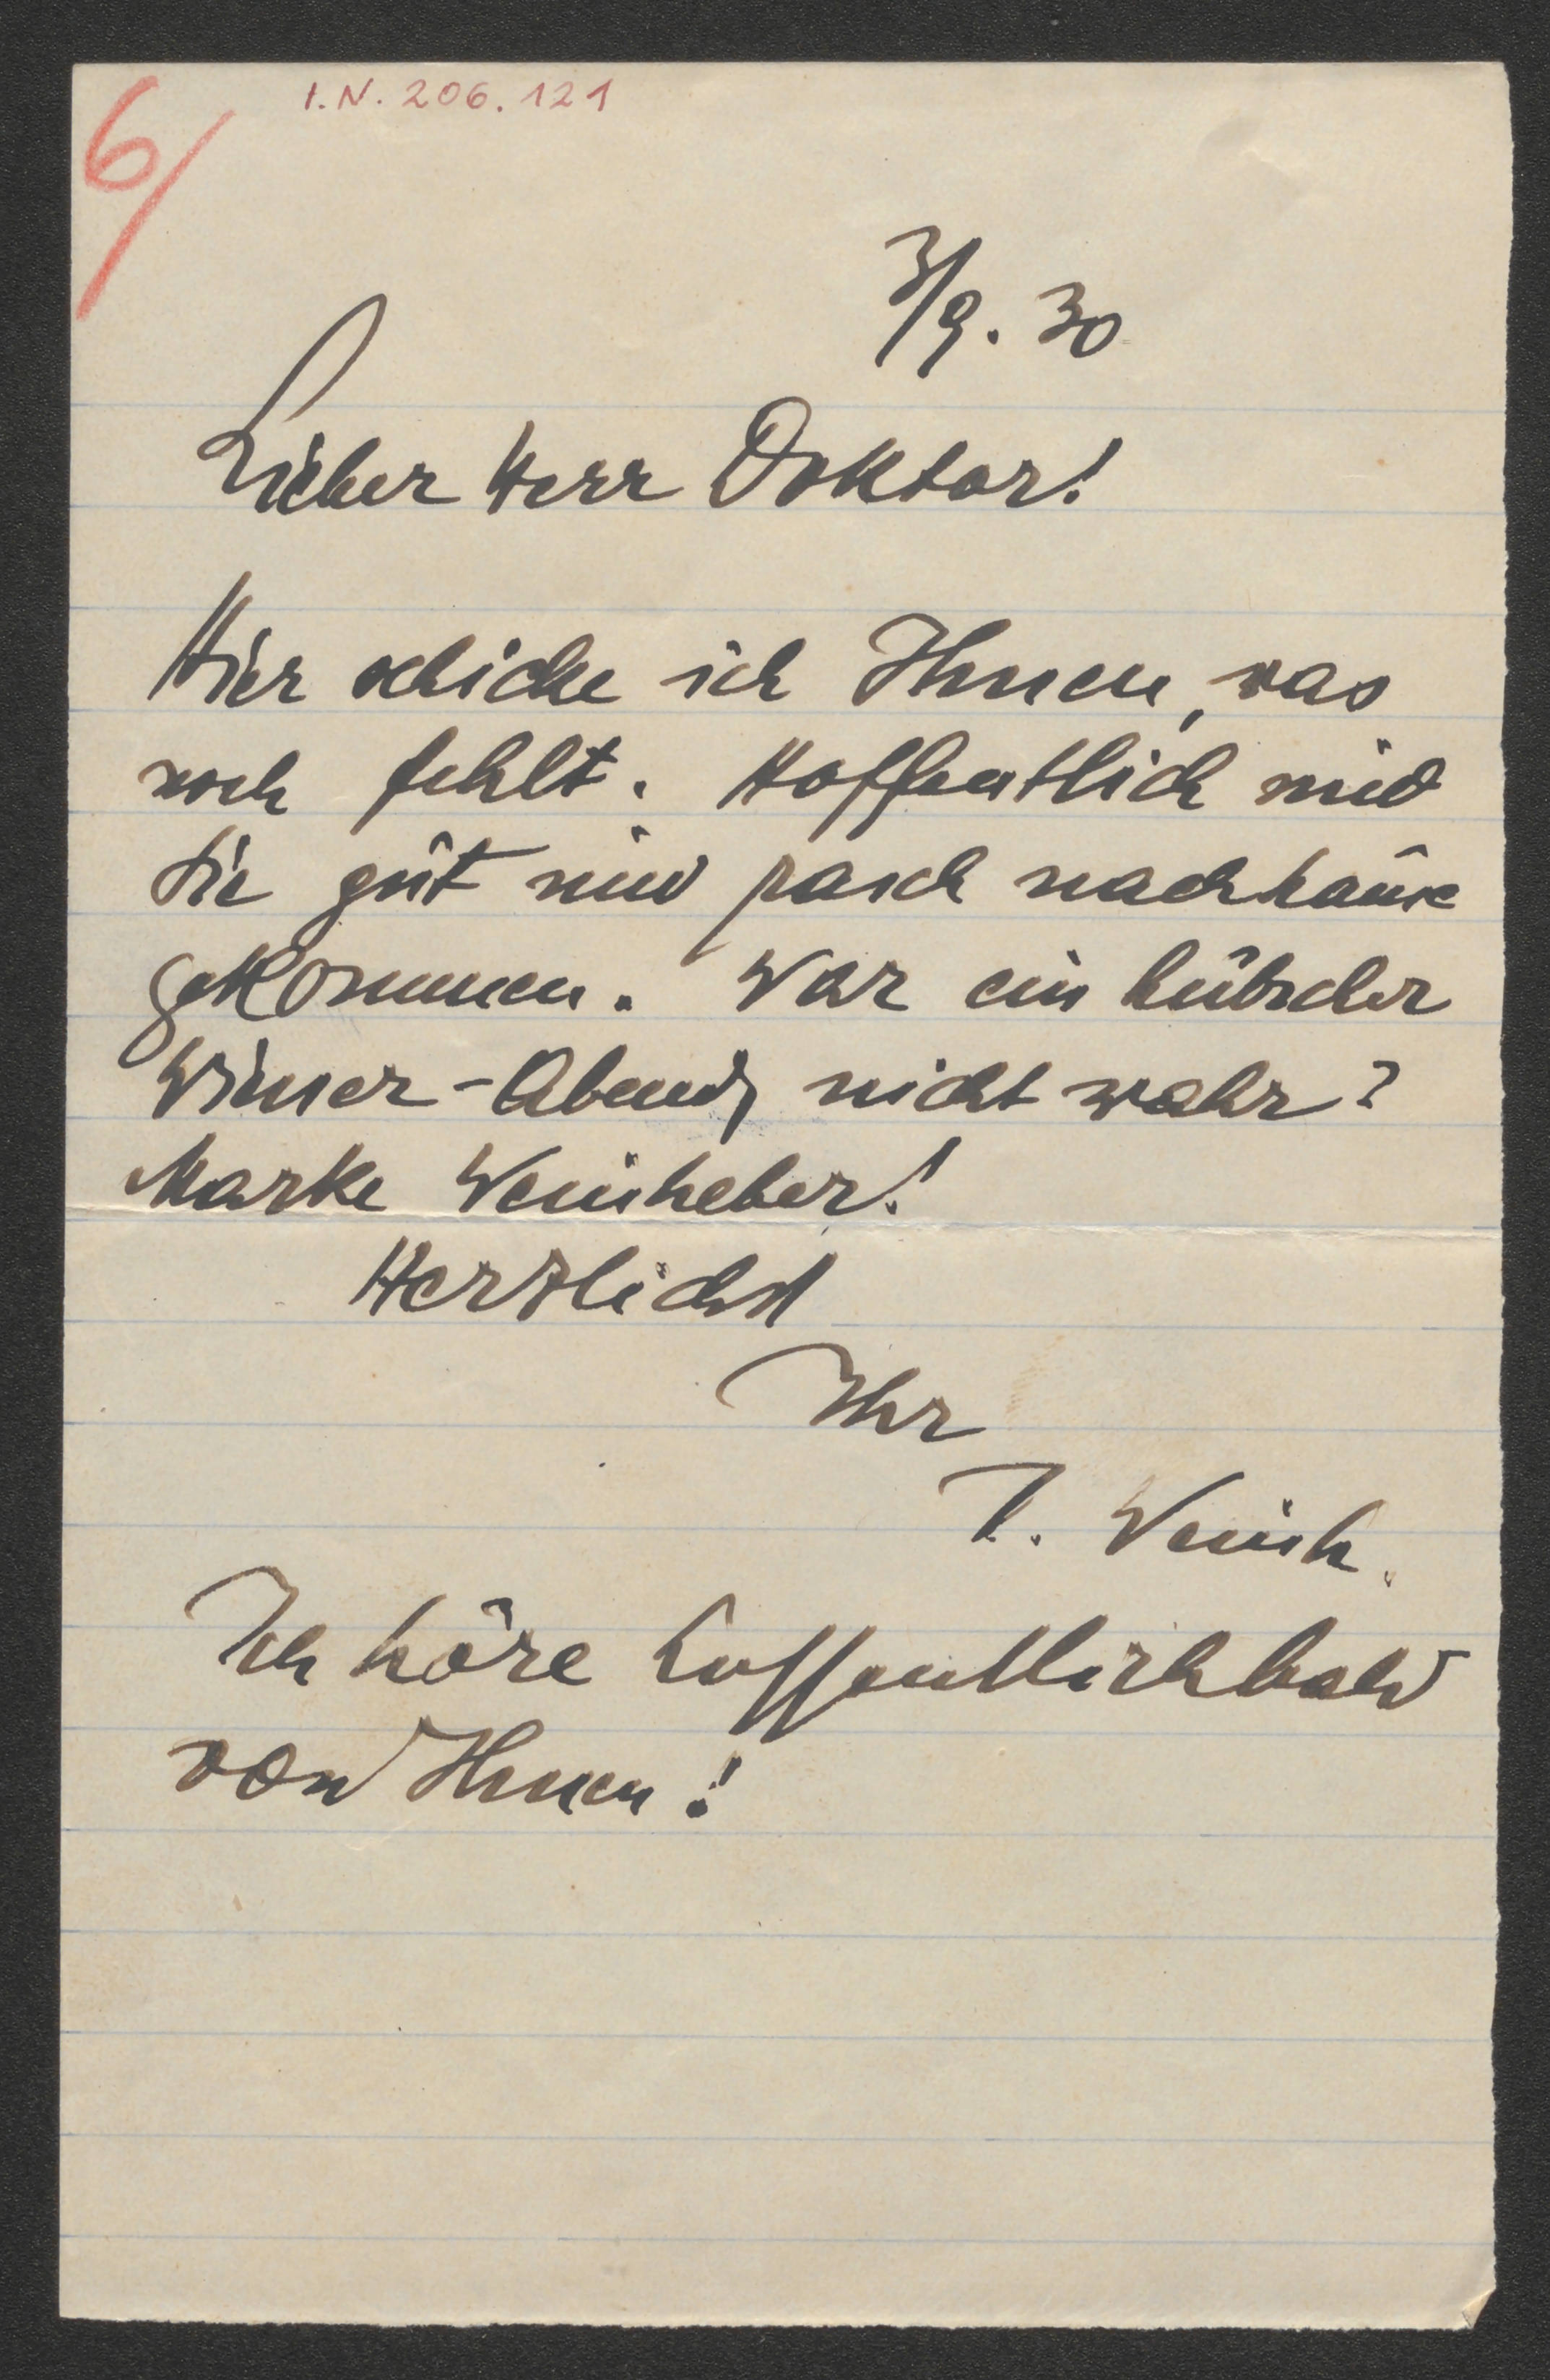 6/
I.N. 206.121
3/9. 30
Lieber Herr Doktor!
Hier schicke ich Ihnen, was
noch fehlt. Hoffentlich sind
Sie gut und rasch nachhause
gekommen. War ein hübscher
Wiener-Abend, nicht wahr?
Marke Weinheber!
Herzlichst
Ihr
J. Weinh.
Ich höre hoffentlich bald
von Ihnen!